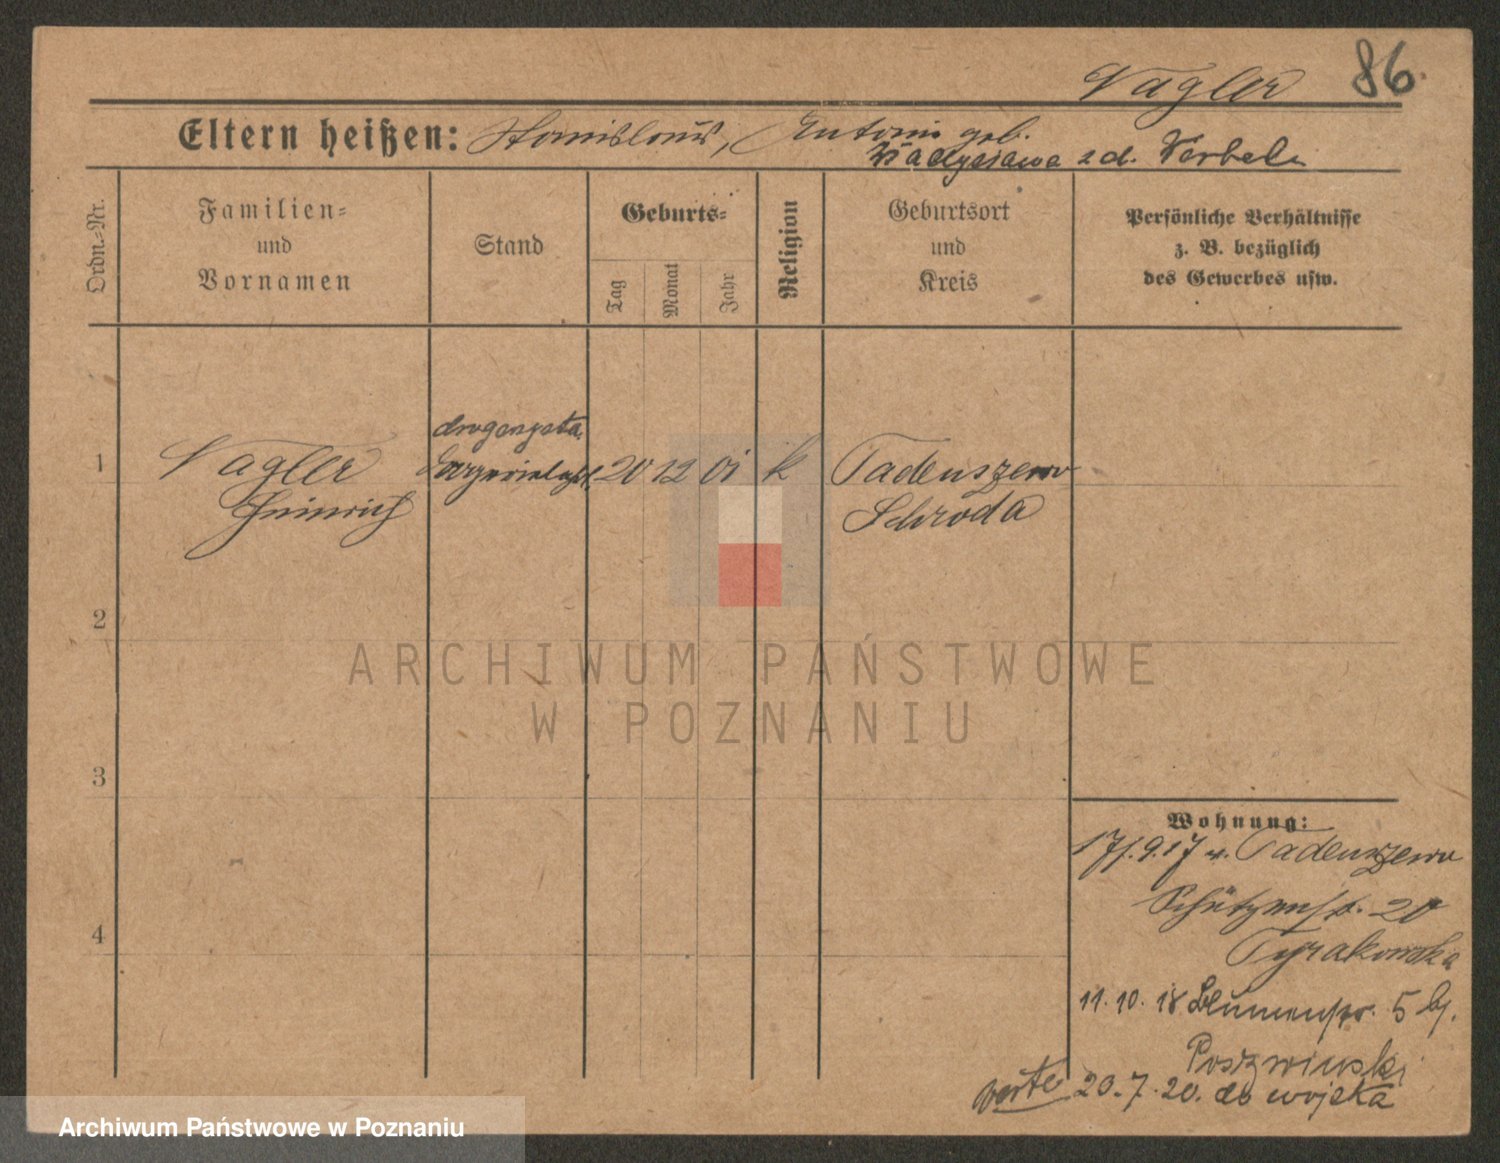 Vagler 86.
Eltern heißen: Stanislaus, Antonie geb.
Władysława z d. Verbel
Ordn.-Nr.
Familien-
und
Vornamen
Stand
Geburts-
Tag
Monat
Jahr
Religion
Geburtsort
und
Kreis
Persönliche Verhältnisse
z. B. bezüglich
des Gewerbes usw.
drogerzysta
1 Vagler 20 12 01 k Tadeuszewo
Heinrich Schroda
2
3
4
Wohnung:
17/9.17 v. Tadeuszewo
Schützenstr. 20
Tyrakowska
11. 10. 18 Blumenstr. 5 bj.
Poszwinski
verte 20. 7. 20. do wojska
ARCHIWUM PAŃSTWOWE
W POZNANIU
Archiwum Państwowe w Poznaniu